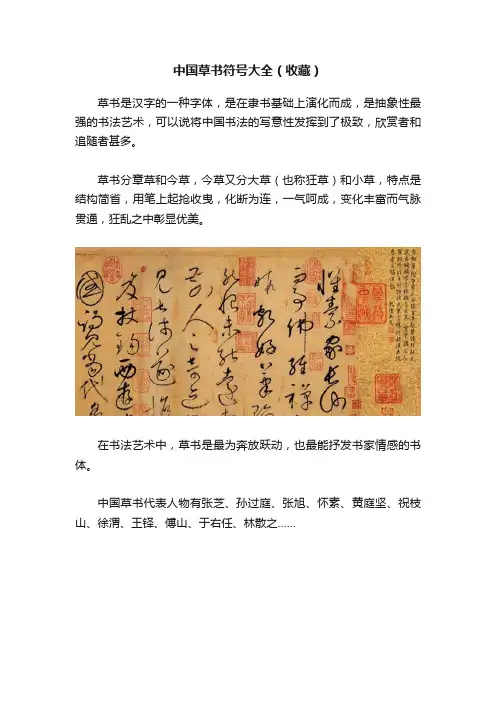 中国草书符号大全（收藏）
草书是汉字的一种字体，是在隶书基础上演化而成，是抽象性最
强的书法艺术，可以说将中国书法的写意性发挥到了极致，欣赏者和
追随者甚多。
草书分章草和今草，今草又分大草（也称狂草）和小草，特点是
结构简省，用笔上起抢收曳，化断为连，一气呵成，变化丰富而气脉
贯通，狂乱之中彰显优美。
懷素家長沙
事佛經禪
暇頗好筆翰
然恨未能遠
前人之奇迹
見甚淺遂
笈杖錫西遊
國謁見當代名
在书法艺术中，草书是最为奔放跃动，也最能抒发书家情感的书
体。
中国草书代表人物有张芝、孙过庭、张旭、怀素、黄庭坚、祝枝
山、徐渭、王铎、傅山、于右任、林散之......